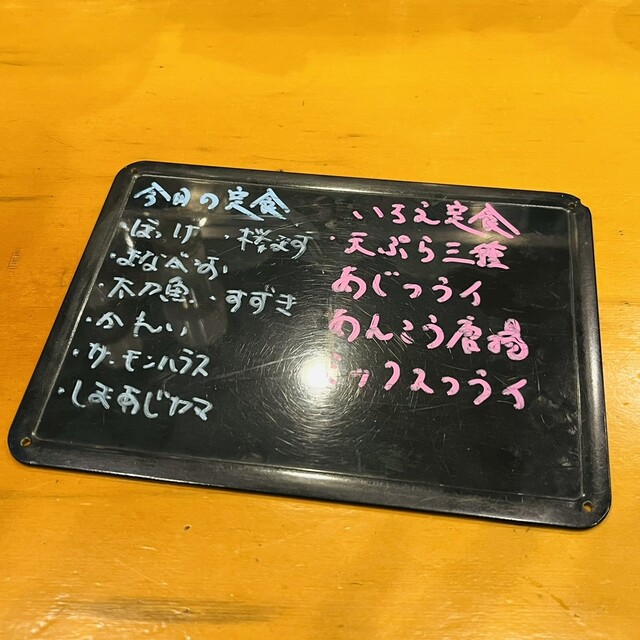 今日の定食
・ほっけ ・桜ます
・まながつお
・太刀魚 ・すずき
・かれい
・サーモンハラス
・しまあじカマ
いろえ定食
・天ぷら三種
あじフライ
あんこう唐揚
ミックスフライ